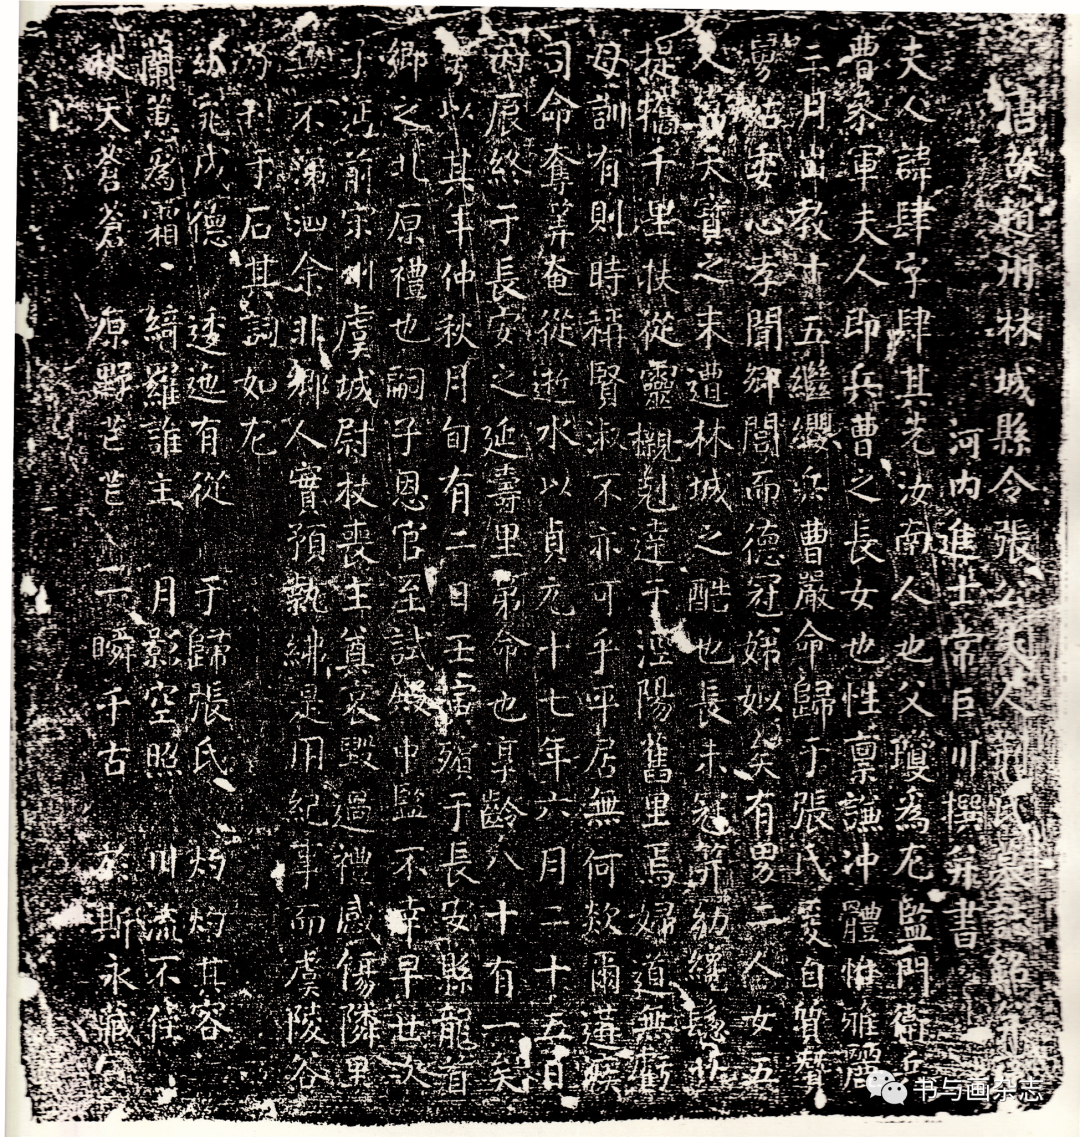 唐故趙州林城縣令張公夫人荊氏墓誌銘并序
河內進士常巨川撰并書
夫人諱肆字肆其先汝南人也父瓊為左監門衛兵
曹參軍夫人即兵曹之長女也性禀謙沖體惟雅麗
三月出教十五繼纓兵曹嚴命歸于張氏爰自贊
舅姑委心孝聞鄉閭而德冠娣姒矣有男二人女五
人天寶之末遭林城之酷也長未冠笄幼纔
提攜千里扶從靈櫬剋達于涇陽舊里焉婦道無虧
母訓有則時稱賢淑不亦可乎呼居無何欻爾遘疾
司命奪筭奄從逝水以貞元十七年六月二十五日
扆終于長安之延壽里第命也享齡八十有一矣
以其年仲秋月旬有二日壬寅殯于長安縣龍首
鄉之北原禮也嗣子恩官至試殿中監不幸早世次
子前宋州虞城尉杖喪主奠哀毀過禮感傷隣里
無不涕泗余非鄉人實預執紼是用紀事而虞陵谷
刊于石其詞如左
窈窕成德 逶迤有從 于歸張氏 灼灼其容
蘭蕙為霜 綺羅誰主 月影空照 川流不住
秋天蒼蒼 原野芒芒 一瞬千古 於斯永藏
书与画杂志